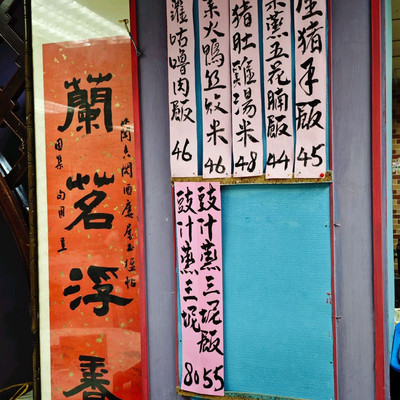 猪手飯 45
蒸五花腩飯 44
猪肚雞湯米 48
火鴨絲炆米 46
咕嚕肉飯 46
豉汁蒸三坭飯 55
豉汁蒸三坭 80
蘭茗浮香